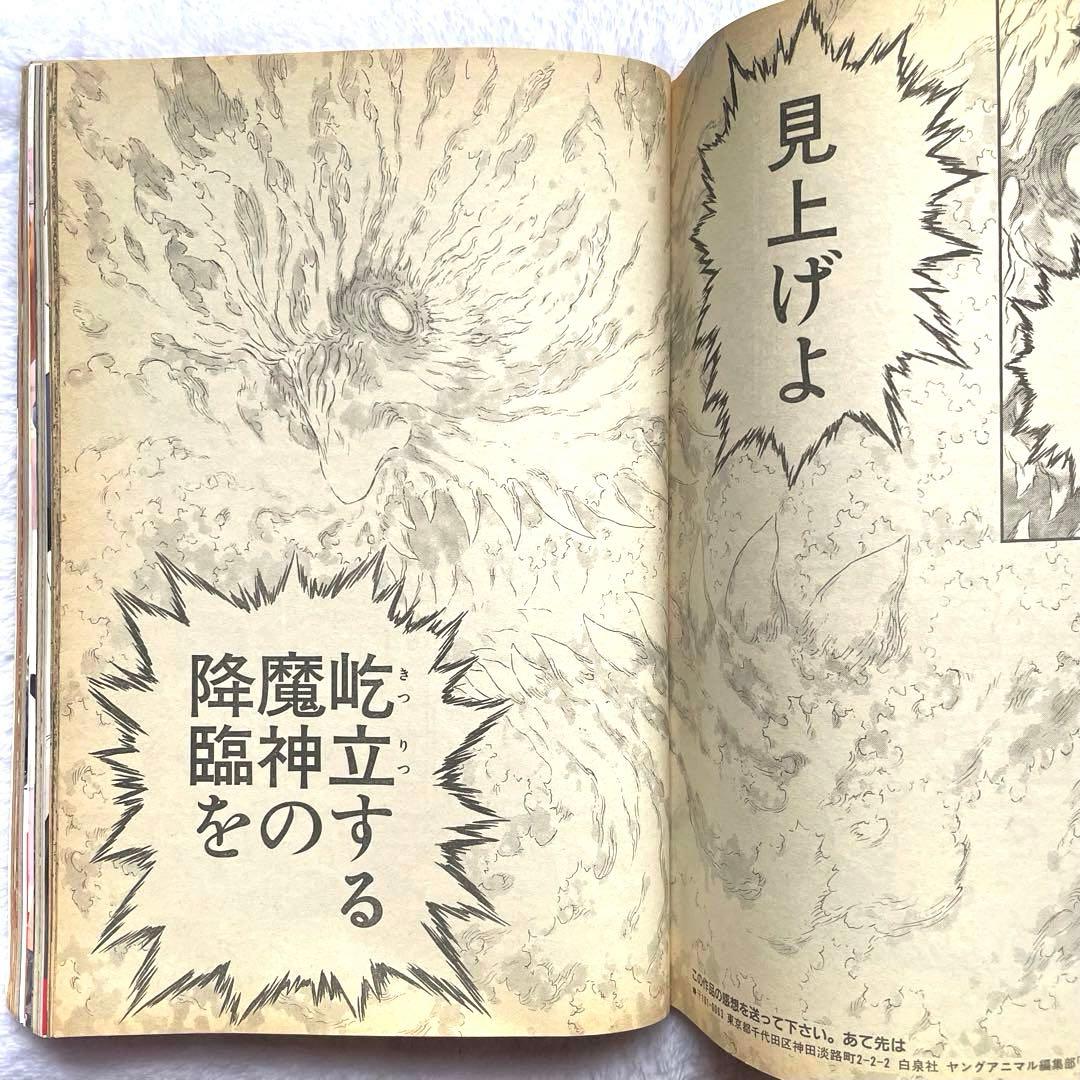 見上げよ
屹立する
きつ りつ
魔神の
降臨を
この作品の感想を送って下さい。あて先は
■〒101-0063 東京都千代田区神田淡路町2-2-2 白泉社 ヤングアニマル編集部「